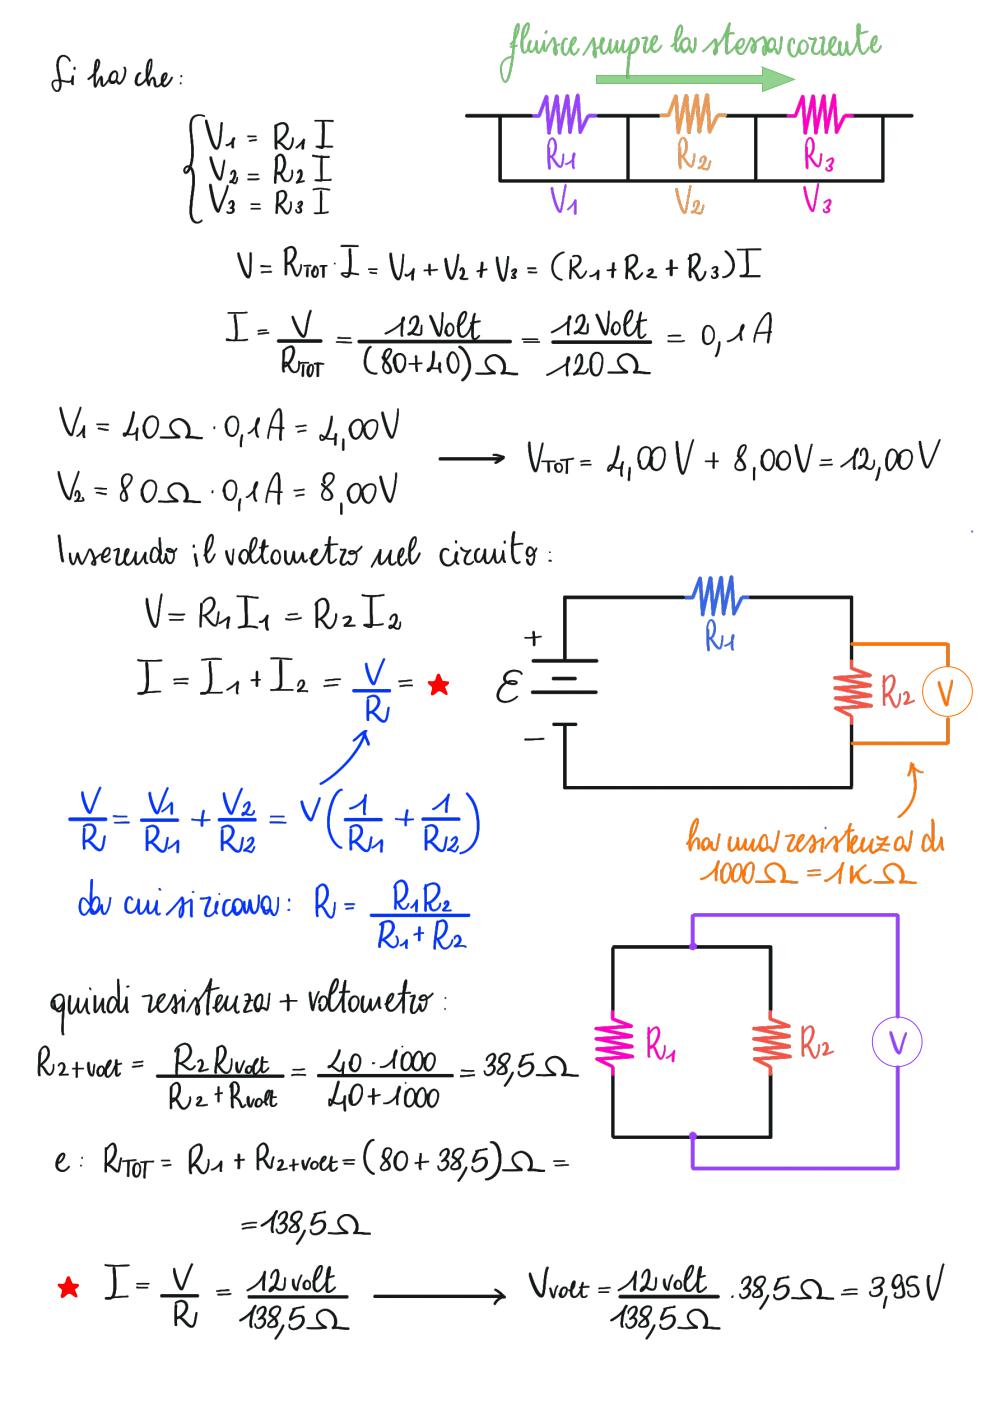 fluisce sempre la stessa corrente
Si ha che:
V1 = R1 I
V2 = R2 I
V3 = R3 I
R1 R2 R3
V1 V2 V3
V = RTOT · I = V1 + V2 + V3 = (R1 + R2 + R3) I
I = V/RTOT = 12 Volt/(80+40)Ω = 12 Volt/120Ω = 0,1A
V1 = 40Ω · 0,1A = 4,00V
V2 = 80Ω · 0,1A = 8,00V
→ VTOT = 4,00V + 8,00V = 12,00V
Inserendo il voltometro nel circuito:
V = R1 I1 = R2 I2
I = I1 + I2 = V/R = ★
R1
+
ℰ
−
R2 V
V/R = V1/R1 + V2/R2 = V(1/R1 + 1/R2)
ha una resistenza di
1000Ω = 1KΩ
da cui si ricava: R = R1R2/R1 + R2
quindi resistenza + voltometro:
R2+volt = R2 Rvolt/R2 + Rvolt = 40 · 1000/40 + 1000 = 38,5Ω
R1 R2 V
e: RTOT = R1 + R2+volt = (80 + 38,5)Ω =
= 138,5Ω
★ I = V/R = 12 volt/138,5Ω → Vvolt = 12 volt/138,5Ω · 38,5Ω = 3,95V